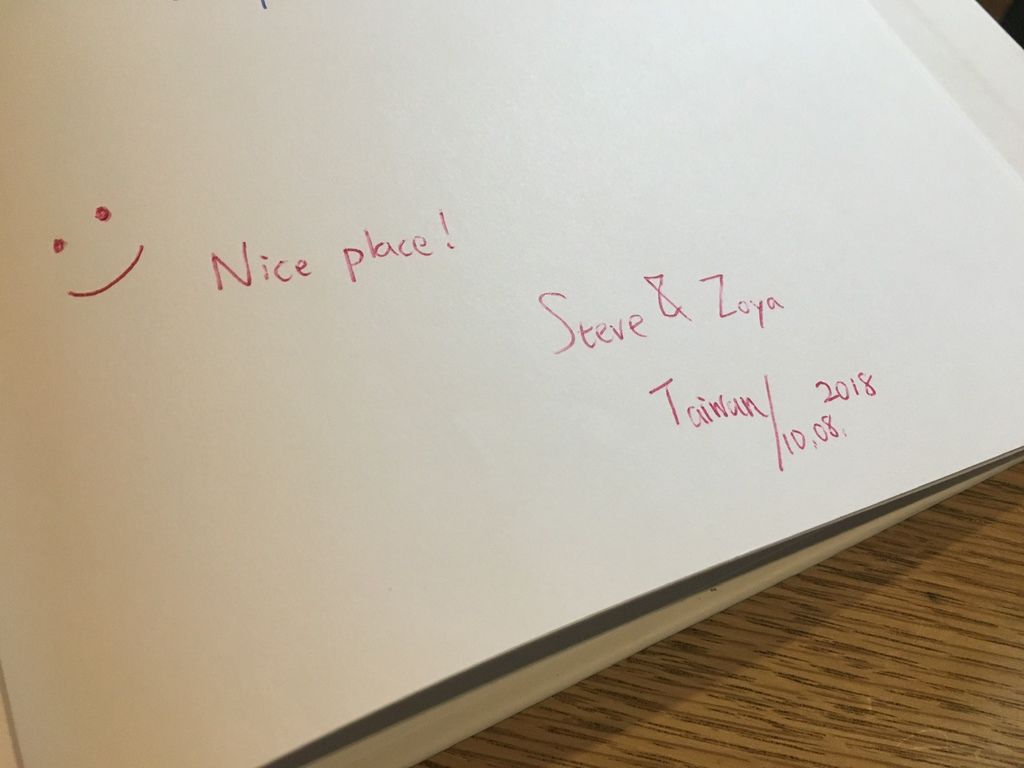 Nice place!
Steve & Zoya
Taiwan/ 2018
10.08.